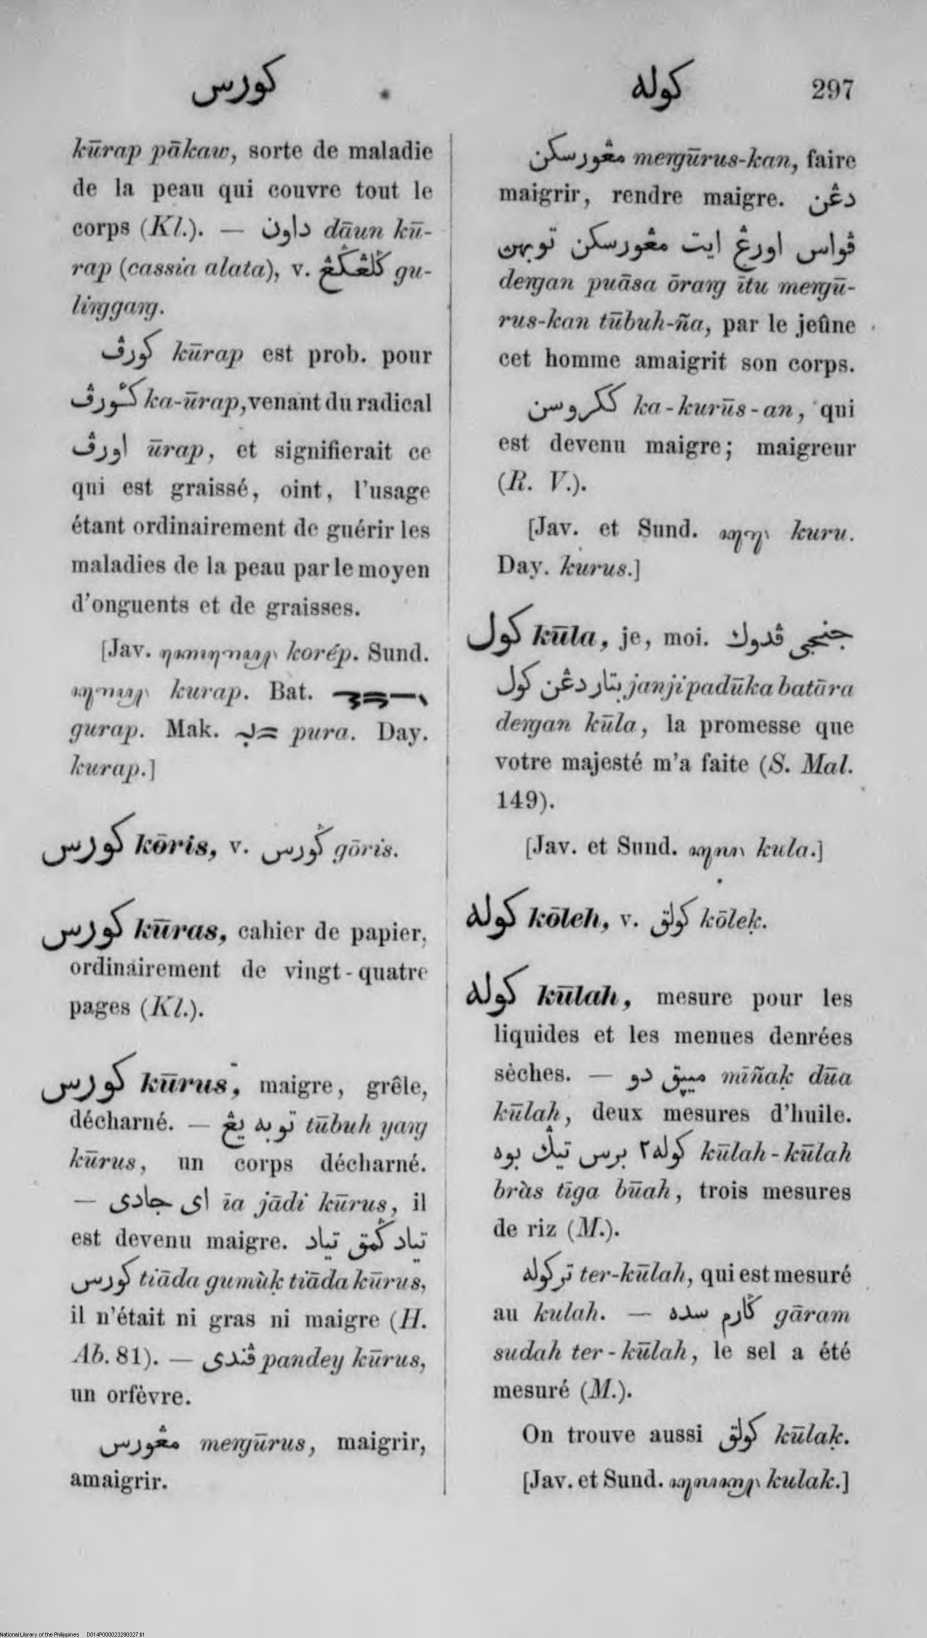 كورس
كوله
297
kūrap pākaw, sorte de maladie
de la peau qui couvre tout le
corps (Kl.). — داون dāun kū-
rap (cassia alata), v. ݢلڠݢڠ gu-
liṅggaṅg.
كورڤ kūrap est prob. pour
ka-ūrap, venant du radical
اورڤ ūrap, et signifierait ce
qui est graissé, oint, l'usage
étant ordinairement de guérir les
maladies de la peau par le moyen
d'onguents et de graisses.
[Jav. korép. Sund.
kurap. Bat.
gurap. Mak. pura. Day.
kurap.]
كورس kōris, v. ݢورس gōris.
كورس kūras, cahier de papier,
ordinairement de vingt-quatre
pages (Kl.).
كورس kūrus, maigre, grêle,
décharné. — توبه يڠ tūbuh yaṅg
kūrus, un corps décharné.
— اى جادى īa jādi kūrus, il
est devenu maigre. تياد ݢمق تياد
كورس tiāda gumùḳ tiāda kūrus,
il n'était ni gras ni maigre (H.
Ab. 81). — ڤندى pandey kūrus,
un orfèvre.
مڠورس meṅgūrus, maigrir,
amaigrir.
مڠورسكن meṅgūrus-kan, faire
maigrir, rendre maigre. دڠن
ڤواس اورڠ ايت مڠورسكن توبهن
deṅgan puāsa ōraṅg ītu meṅgū-
rus-kan tūbuh-ña, par le jeûne
cet homme amaigrit son corps.
ككروسن ka-kurūs-an, qui
est devenu maigre; maigreur
(R. V.).
[Jav. et Sund. kuru.
Day. kurus.]
كول kūla, je, moi. جنجى ڤدوك
بتار دڠن كول janji padūka batāra
deṅgan kūla, la promesse que
votre majesté m'a faite (S. Mal.
149).
[Jav. et Sund. kula.]
كوله kōleh, v. كولق kōleḳ.
كوله kūlah, mesure pour les
liquides et les menues denrées
sèches. — ميڽق دو mīñaḳ dūa
kūlah, deux mesures d'huile.
كوله٢ برس تيݢ بوه kūlah-kūlah
bràs tīga būah, trois mesures
de riz (M.).
تركوله ter-kūlah, qui est mesuré
au kulah. — ݢارم سده gāram
sudah ter-kūlah, le sel a été
mesuré (M.).
On trouve aussi كولق kūlaḳ.
[Jav. et Sund. kulak.]
National Library of the Philippines